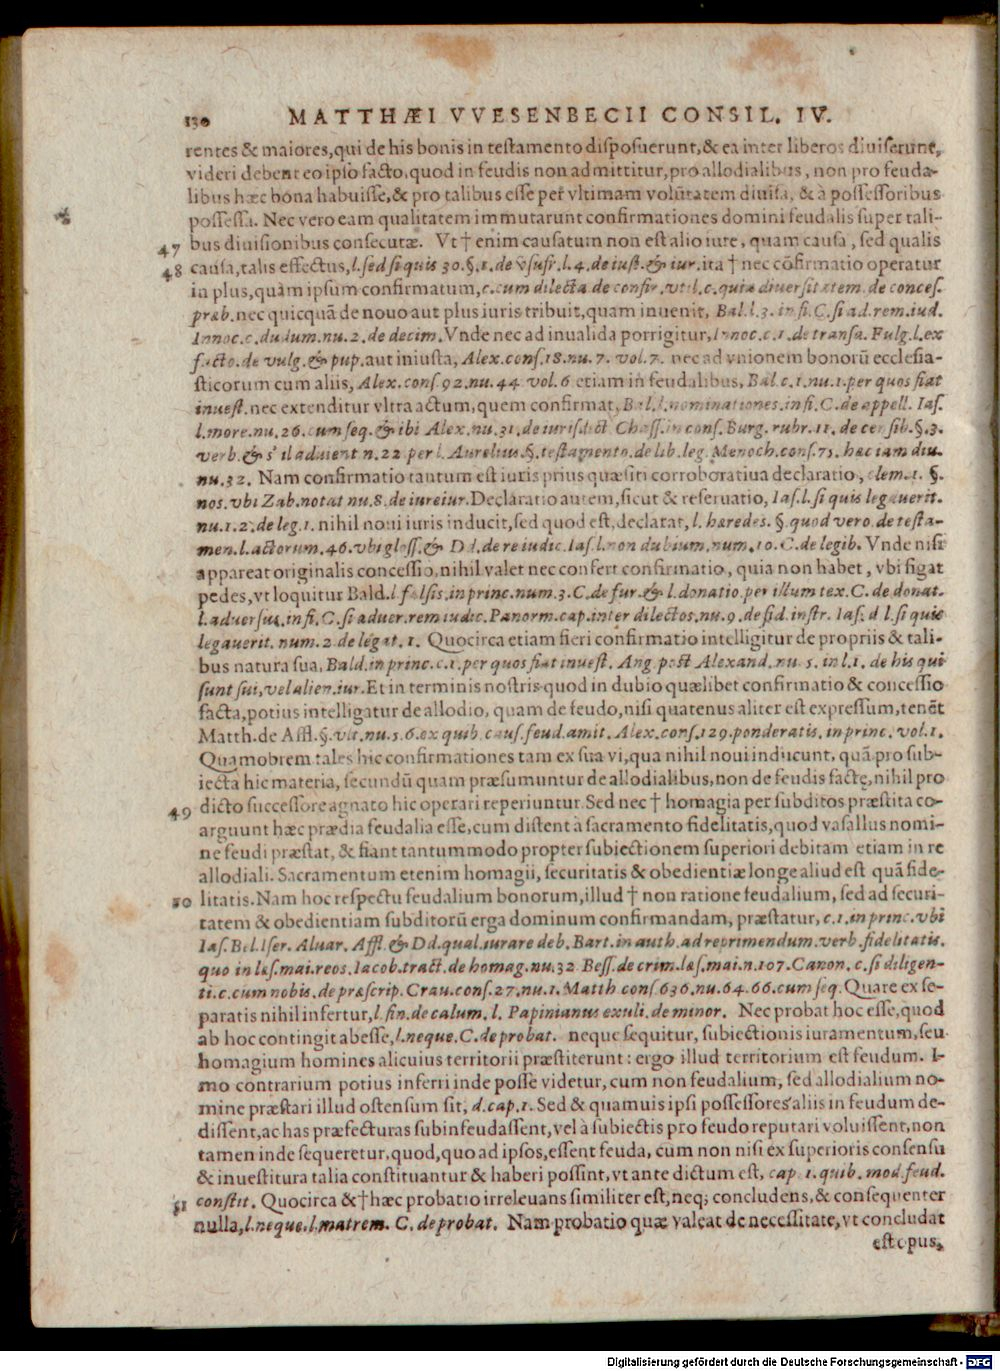 130 MATTHÆI VVESENBECII CONSIL. IV.
rentes & maiores, qui de his bonis in testamento disposuerunt, & ea inter liberos diuiserunt,
videri debent eo ipso facto, quod in feudis non admittitur, pro allodialibus, non pro feuda-
libus hæc bona habuisse, & pro talibus esse per vltimam volūtatem diuisa, & à possessoribus
possessa. Nec vero eam qualitatem immutarunt confirmationes domini feudalis super tali-
47 bus diuisionibus consecutæ. Vt † enim causatum non est alio iure, quam causa, sed qualis
48 causa, talis effectus, l. sed si quis 30. §. 1. de vsufr. l. 4. de iust. & iur. ita † nec cōfirmatio operatur
in plus, quàm ipsum confirmatum, c. cum dilecta de confir. vtil. c. quia diuersitatem. de conces.
præb. nec quicquā de nouo aut plus iuris tribuit, quam inuenit, Bal. l. 3. in fi. C. si ad. rem. iud.
Innoc. c. dudum. nu. 2. de decim. Vnde nec ad inualida porrigitur, Innoc. c. 1. de transa. Fulg. l. ex
facto. de vulg. & pup. aut iniusta, Alex. cons. 18. nu. 7. vol. 7. nec ad vnionem bonorū ecclesia-
sticorum cum aliis, Alex. cons. 92. nu. 44 vol. 6 etiam in feudalibus, Bal. c. 1. nu. 1. per quos fiat
inuest. nec extenditur vltra actum, quem confirmat, Bal. l. nominationes. in fi. C. de appell. Ias.
l. more. nu. 26. cum seq. & ibi Alex. nu. 31. de iurisdict Chass. in cons. Burg. rubr. 11. de cens ib. §. 3.
verb. & s'il aduient n. 22 per l. Aurelius. §. testamento. de lib. leg. Menoch. cons. 75. hac iam diu.
nu. 32. Nam confirmatio tantum est iuris prius quæsiti corroboratiua declaratio, clem. 1. §.
nos. vbi Zab. notat nu. 8. de iureiur. Declaratio autem, sicut & reseruatio, Ias. l. si quis legauerit.
nu. 1. 2. de leg. 1. nihil noui iuris inducit, sed quod est, declarat, l. hæredes. §. quod vero. de testa-
men. l. actorum. 46. vbi gloss. & Dd. de re iudic. Ias. l. non dubium. num. 10. C. de legib. Vnde nisi
appareat originalis concessio, nihil valet nec confert confirmatio, quia non habet, vbi figat
pedes, vt loquitur Bald. l. falsis. in princ. num. 3. C. de fur. & l. donatio. per illum tex. C. de donat.
l. aduersus. in fi. C. si aduer. rem iudic. Panorm. cap. inter dilectos. nu. 9. de fid. instr. Ias. d l. si quis
legauerit. num. 2 de legat. 1. Quocirca etiam fieri confirmatio intelligitur de propriis & tali-
bus natura sua, Bald. in princ. c. 1. per quos fiat inuest. Ang. post Alexand. nu. 5. in l. 1. de his qui
sunt sui, vel alien. iur. Et in terminis nostris quod in dubio quælibet confirmatio & concessio
facta, potius intelligatur de allodio, quam de feudo, nisi quatenus aliter est expressum, tenēt
Matth. de Affl. §. vlt. nu. 5. 6. ex quib. caus. feud. amit. Alex. cons. 129. ponderatis. in princ. vol. 1.
Quamobrem tales hic confirmationes tam ex sua vi, qua nihil noui inducunt, quā pro sub-
iecta hic materia, secundū quam præsumuntur de allodialibus, non de feudis factę, nihil pro
49 dicto successore agnato hic operari reperiuntur. Sed nec † homagia per subditos præstita co-
arguunt hæc prædia feudalia esse, cum distent à sacramento fidelitatis, quod vasallus nomi-
ne feudi præstat, & fiant tantummodo propter subiectionem superiori debitam etiam in re
allodiali. Sacramentum etenim homagii, securitatis & obedientiæ longe aliud est quā fide-
50 litatis. Nam hoc respectu feudalium bonorum, illud † non ratione feudalium, sed ad securi-
tatem & obedientiam subditorū erga dominum confirmandam, præstatur, c. 1. in princ. vbi
Ias. Bal. Iser. Aluar. Affl. & Dd. qual. iurare deb. Bart. in auth. ad reprimendum. verb. fidelitatis.
quo in læs. mai. reos. Iacob. tract. de homag. nu. 32 Bess. de crim. læs. mai. n. 107. Canon. c. si diligen-
ti. c. cum nobis. de præscrip. Crau. cons. 27. nu. 1. Matth cons 636. nu. 64. 66. cum seq. Quare ex se-
paratis nihil infertur, l. fin. de calum. l. Papinianus exuli. de minor. Nec probat hoc esse, quod
ab hoc contingit abesse, l. neque. C. de probat. neque sequitur, subiectionis iuramentum, seu
homagium homines alicuius territorii præstiterunt: ergo illud territorium est feudum. I-
mo contrarium potius inferri inde posse videtur, cum non feudalium, sed allodialium no-
mine præstari illud ostensum sit, d. cap. 1. Sed & quamuis ipsi possessores aliis in feudum de-
dissent, ac has præfecturas subinfeudassent, vel à subiectis pro feudo reputari voluissent, non
tamen inde sequeretur, quod, quo ad ipsos, essent feuda, cum non nisi ex superioris consensu
& inuestitura talia constituantur & haberi possint, vt ante dictum est, cap. 1. quib. mod. feud.
51 constit. Quocirca & † hæc probatio irreleuans similiter est, neq; concludens, & consequenter
nulla, l. neque. l. matrem. C. de probat. Nam probatio quæ valeat de necessitate, vt concludat
est opus,
Digitalisierung gefördert durch die Deutsche Forschungsgemeinschaft - DFG